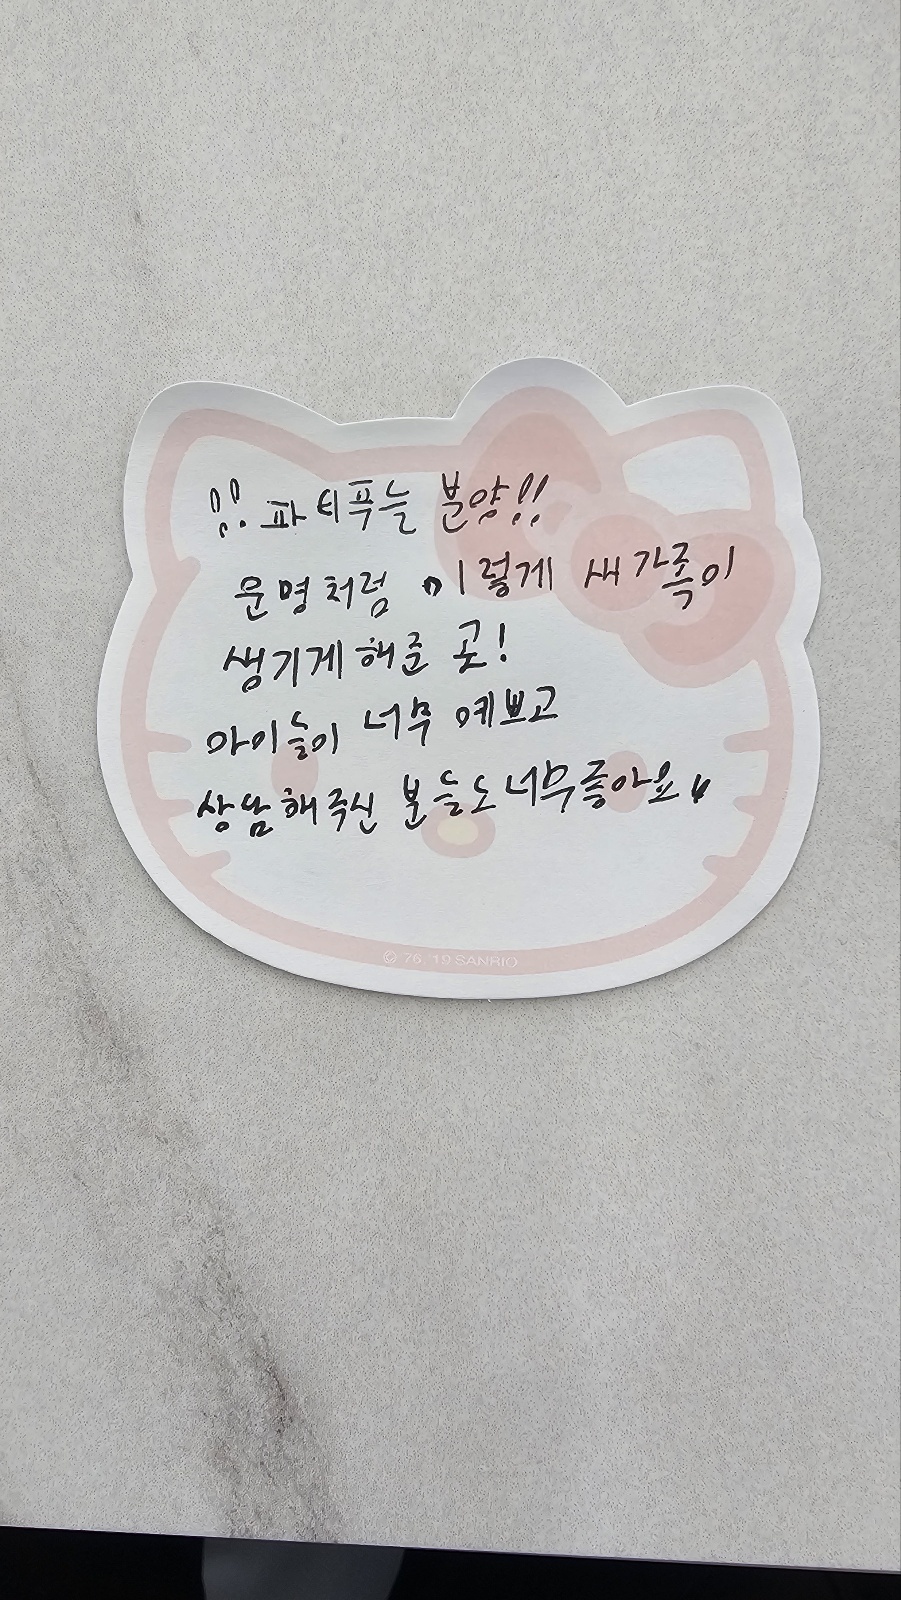 !! 파티푸들 분양!!
운명처럼 이렇게 새가족이
생기게해준 곳!
아이들이 너무 예쁘고
상담해주신 분들도너무좋아요"
© 76, '19 SANRIO